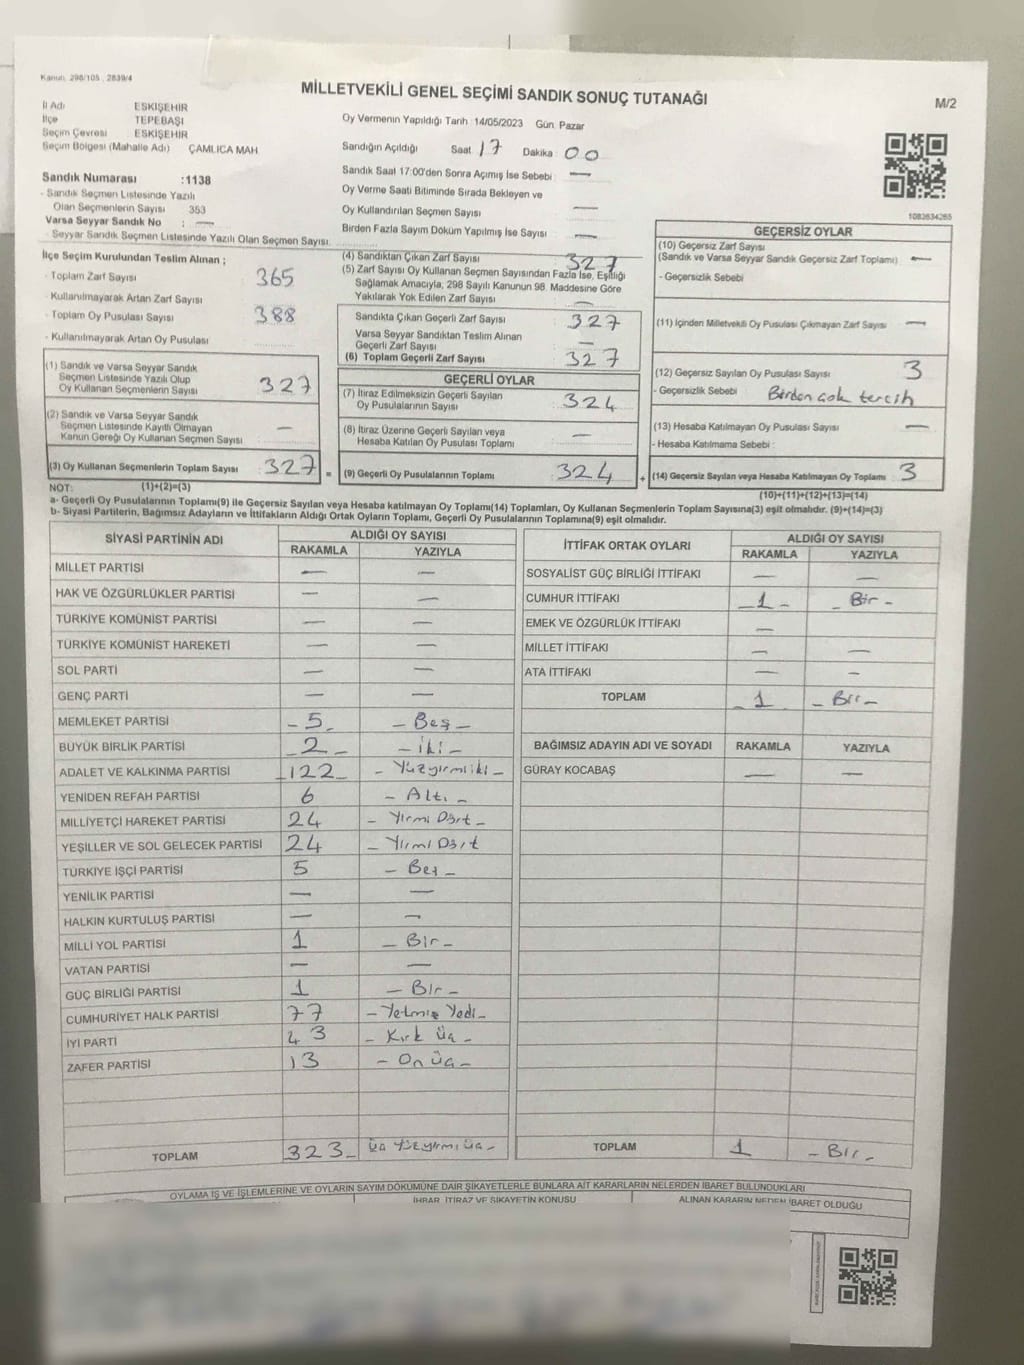 Kanun. 298/105 , 2839/4
MİLLETVEKİLİ GENEL SEÇİMİ SANDIK SONUÇ TUTANAĞI
M/2
İl Adı ESKİŞEHİR
İlçe TEPEBAŞI
Seçim Çevresi : ESKİŞEHİR
Seçim Bölgesi (Mahalle Adı) ÇAMLICA MAH.
Sandık Numarası :1138
- Sandık Seçmen Listesinde Yazılı
Olan Seçmenlerin Sayısı 353
Varsa Seyyar Sandık No : —
- Seyyar Sandık Seçmen Listesinde Yazılı Olan Seçmen Sayısı:
Oy Vermenin Yapıldığı Tarih :14/05/2023 Gün. Pazar
Sandığın Açıldığı Saat 17 Dakika : 00
Sandık Saat 17:00'den Sonra Açmış İse Sebebi : —
Oy Verme Saati Bitiminde Sırada Bekleyen ve
Oy Kullandırılan Seçmen Sayısı —
Birden Fazla Sayım Döküm Yapılmış İse Sayısı —
1083634265
İlçe Seçim Kurulundan Teslim Alınan ;
- Toplam Zarf Sayısı 365
- Kullanılmayarak Artan Zarf Sayısı
- Toplam Oy Pusulası Sayısı 388
- Kullanılmayarak Artan Oy Pusulası
(1) Sandık ve Varsa Seyyar Sandık
Seçmen Listesinde Yazılı Olup
Oy Kullanan Seçmenlerin Sayısı 327
(2) Sandık ve Varsa Seyyar Sandık
Seçmen Listesinde Kayıtlı Olmayan
Kanun Gereği Oy Kullanan Seçmen Sayısı —
(3) Oy Kullanan Seçmenlerin Toplam Sayısı 327 =
(4) Sandıktan Çıkan Zarf Sayısı 327
(5) Zarf Sayısı Oy Kullanan Seçmen Sayısından Fazla İse, Eşitliği
Sağlamak Amacıyla, 298 Sayılı Kanunun 98. Maddesine Göre
Yakılarak Yok Edilen Zarf Sayısı —
Sandıkta Çıkan Geçerli Zarf Sayısı 327
Varsa Seyyar Sandıktan Teslim Alınan
Geçerli Zarf Sayısı —
(6) Toplam Geçerli Zarf Sayısı 327
GEÇERLİ OYLAR
(7) İtiraz Edilmeksizin Geçerli Sayılan
Oy Pusulalarının Sayısı 324
(8) İtiraz Üzerine Geçerli Sayılan veya
Hesaba Katılan Oy Pusulası Toplamı —
(9) Geçerli Oy Pusulalarının Toplamı 324 +
GEÇERSİZ OYLAR
(10) Geçersiz Zarf Sayısı
(Sandık ve Varsa Seyyar Sandık Geçersiz Zarf Toplamı) —
- Geçersizlik Sebebi
(11) İçinden Milletvekili Oy Pusulası Çıkmayan Zarf Sayısı —
(12) Geçersiz Sayılan Oy Pusulası Sayısı 3
- Geçersizlik Sebebi Birden çok tercih
(13) Hesaba Katılmayan Oy Pusulası Sayısı —
- Hesaba Katılmama Sebebi :
(14) Geçersiz Sayılan veya Hesaba Katılmayan Oy Toplamı 3
NOT: (1)+(2)=(3)
(10)+(11)+(12)+(13)=(14)
a- Geçerli Oy Pusulalarının Toplamı(9) ile Geçersiz Sayılan veya Hesaba Katılmayan Oy Toplamı(14) Toplamları, Oy Kullanan Seçmenlerin Toplam Sayısına(3) eşit olmalıdır. (9)+(14)=(3)
b- Siyasi Partilerin, Bağımsız Adayların ve İttifakların Aldığı Ortak Oyların Toplamı, Geçerli Oy Pusulalarının Toplamına(9) eşit olmalıdır.
SİYASİ PARTİNİN ADI ALDIĞI OY SAYISI
RAKAMLA YAZIYLA
MİLLET PARTİSİ — —
HAK VE ÖZGÜRLÜKLER PARTİSİ — —
TÜRKİYE KOMÜNİST PARTİSİ — —
TÜRKİYE KOMÜNİST HAREKETİ — —
SOL PARTİ — —
GENÇ PARTİ — —
MEMLEKET PARTİSİ - 5 - - Beş -
BÜYÜK BİRLİK PARTİSİ - 2 - - iki -
ADALET VE KALKINMA PARTİSİ -122- - Yüzyirmiiki -
YENİDEN REFAH PARTİSİ 6 - Altı -
MİLLİYETÇİ HAREKET PARTİSİ 24 - Yirmi Dört -
YEŞİLLER VE SOL GELECEK PARTİSİ 24 - Yirmi Dört
TÜRKİYE İŞÇİ PARTİSİ 5 - Beş -
YENİLİK PARTİSİ — —
HALKIN KURTULUŞ PARTİSİ — —
MİLLİ YOL PARTİSİ 1 - Bir -
VATAN PARTİSİ — —
GÜÇ BİRLİĞİ PARTİSİ 1 - Bir -
CUMHURİYET HALK PARTİSİ 77 - Yetmiş Yedi -
İYİ PARTİ 43 - Kırk Üç -
ZAFER PARTİSİ 13 - On Üç -
TOPLAM 323- Üç Yüzyirmi üç -
İTTİFAK ORTAK OYLARI ALDIĞI OY SAYISI
RAKAMLA YAZIYLA
SOSYALİST GÜÇ BİRLİĞİ İTTİFAKI — —
CUMHUR İTTİFAKI - 1 - - Bir -
EMEK VE ÖZGÜRLÜK İTTİFAKI —
MİLLET İTTİFAKI — —
ATA İTTİFAKI — —
TOPLAM - 1 - Bir -
BAĞIMSIZ ADAYIN ADI VE SOYADI RAKAMLA YAZIYLA
GÜRAY KOCABAŞ — —
TOPLAM 1 - Bir -
OYLAMA İŞ VE İŞLEMLERİNE VE OYLARIN SAYIM DÖKÜMÜNE DAİR ŞİKAYETLERLE BUNLARA AİT KARARLARIN NELERDEN İBARET BULUNDUKLARI
İHBAR, İTİRAZ VE ŞİKAYETİN KONUSU ALINAN KARARIN NEDEN İBARET OLDUĞU